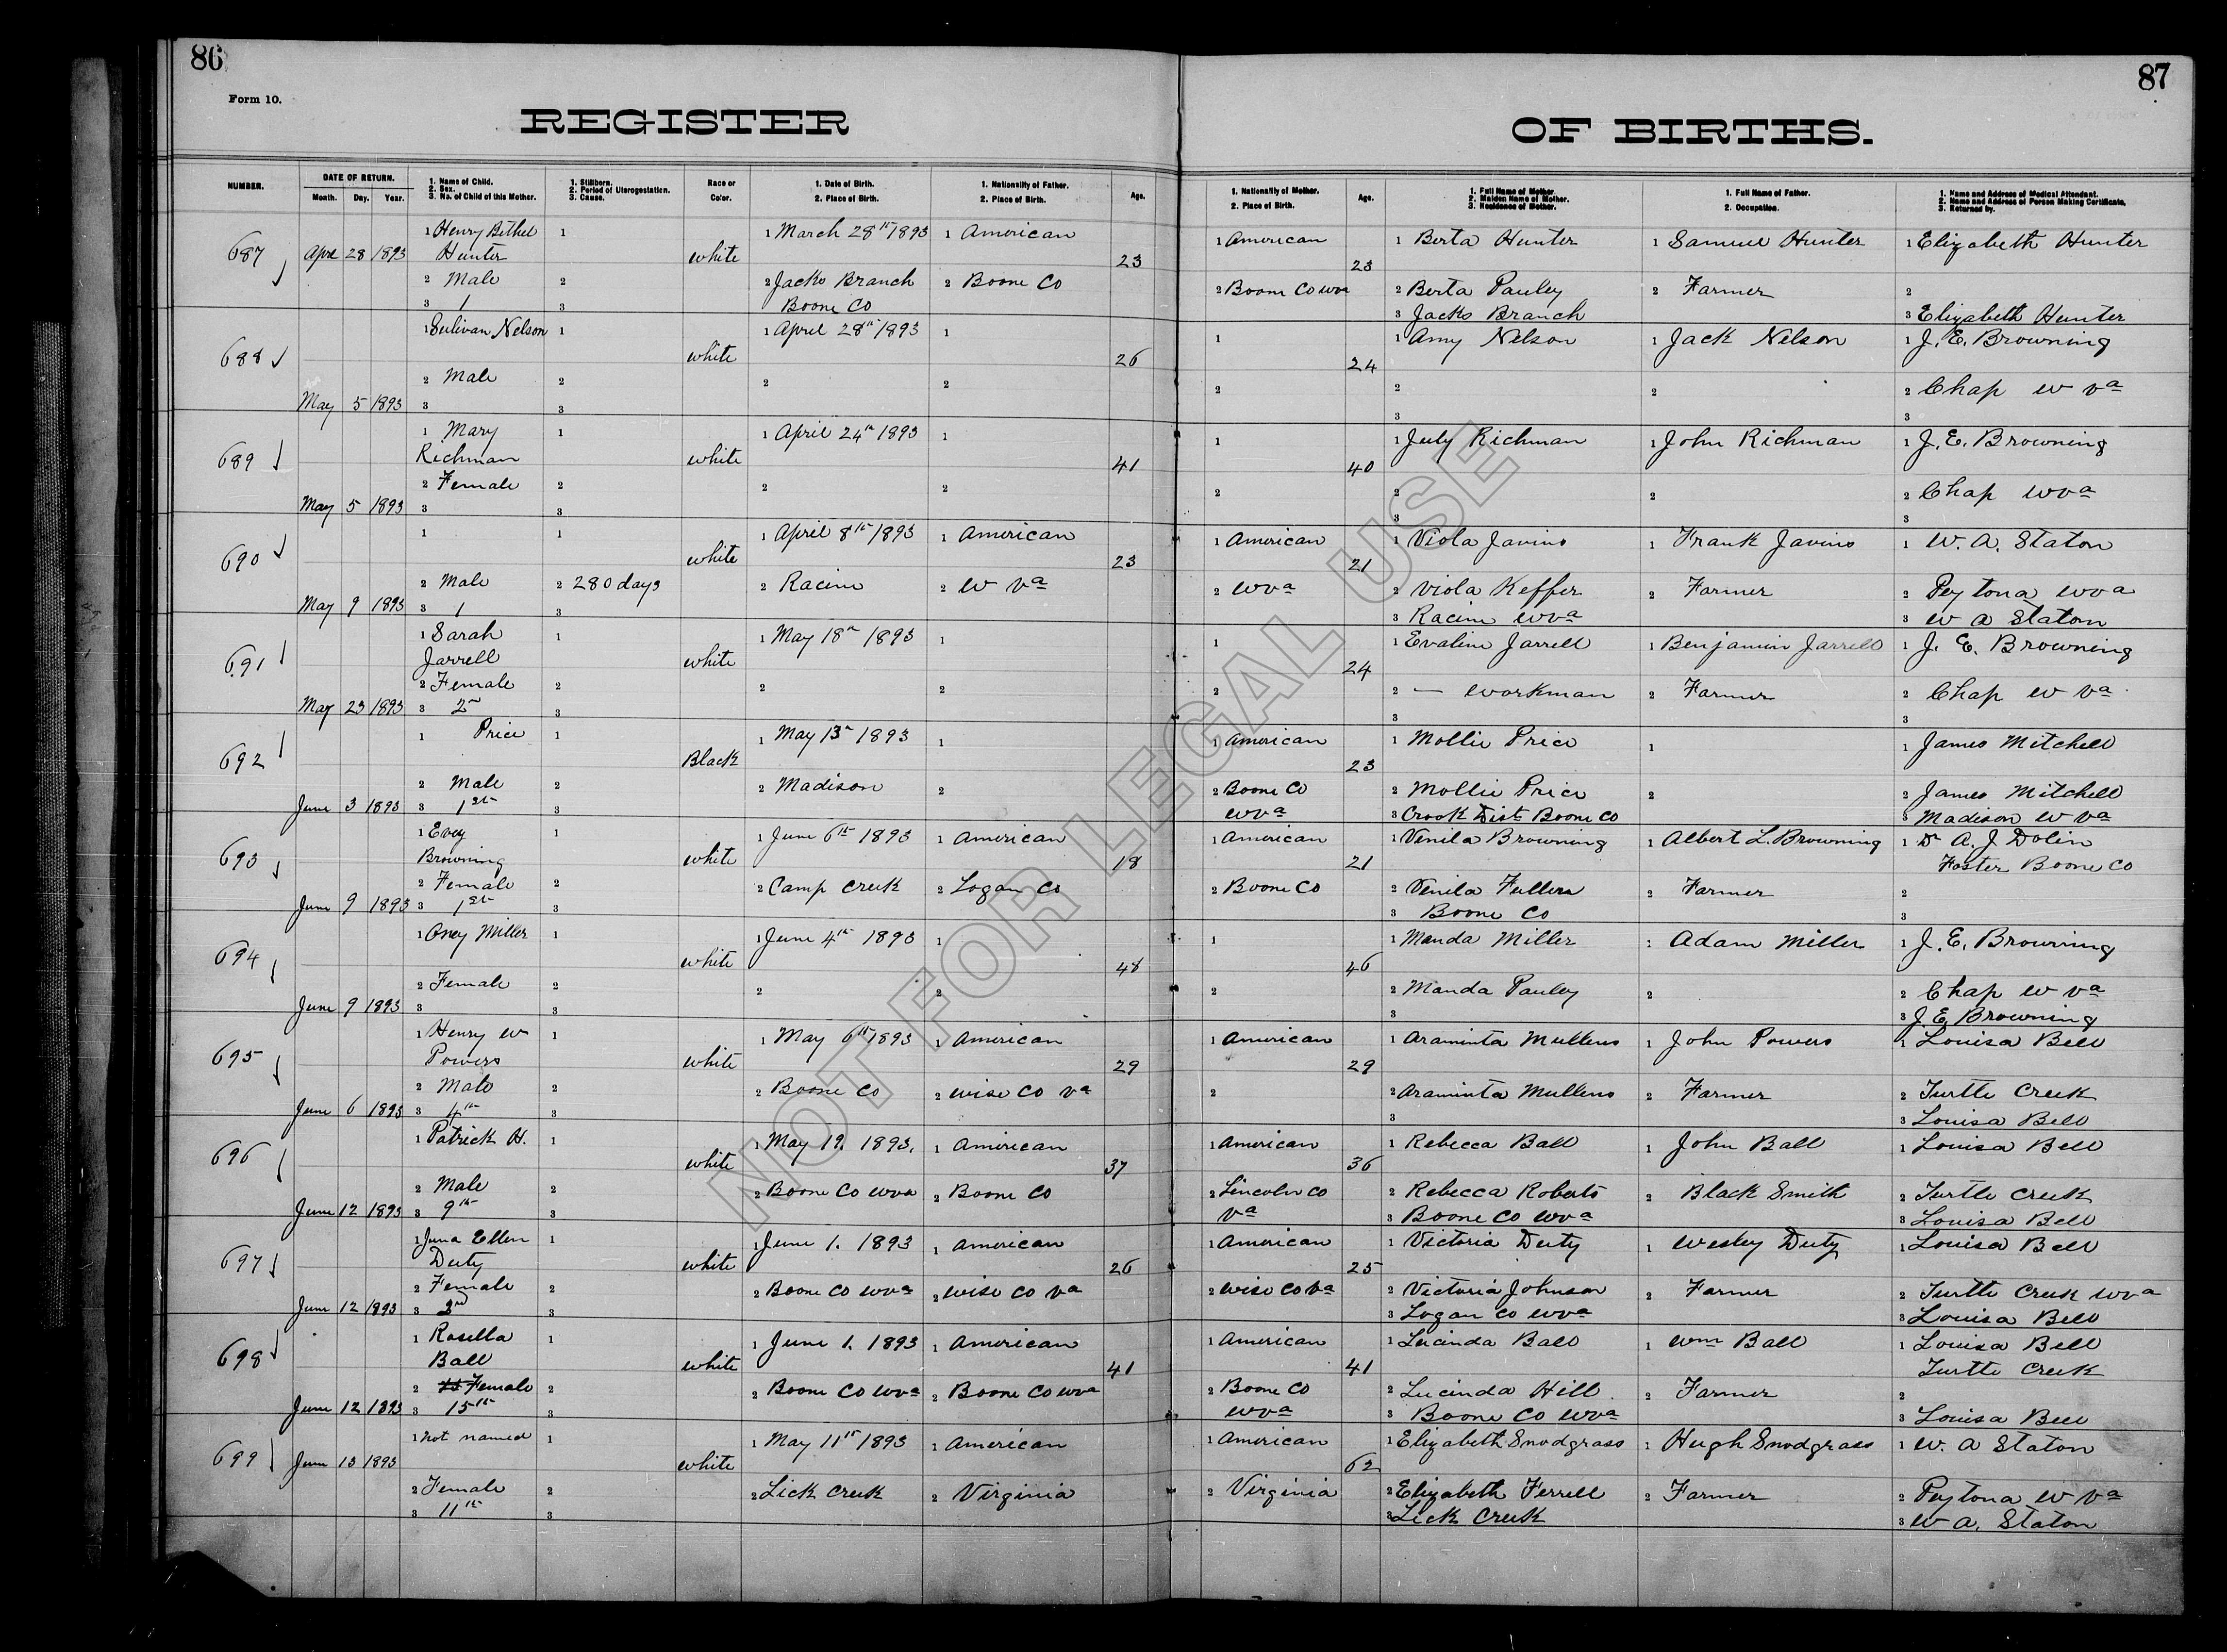 86
87
Form 10.
REGISTER
OF BIRTHS.
NUMBER.
DATE OF RETURN.
Month. Day. Year.
1. Name of Child.
2. Sex.
3. No. of Child of this Mother.
1. Stillborn.
2. Period of Uterogestation.
3. Cause.
Race or
Color.
1. Date of Birth.
2. Place of Birth.
1. Nationality of Father.
2. Place of Birth.
Age.
1. Nationality of Mother.
2. Place of Birth.
Age.
1. Full Name of Mother.
2. Maiden Name of Mother.
3. Residence of Mother.
1. Full Name of Father.
2. Occupation.
1. Name and Address of Medical Attendant.
2. Name and Address of Person Making Certificate.
3. Returned by.
1 Henry Bethel 1 1 March 28th 1893 1 American 1 American 1 Berta Hunter 1 Samuel Hunter 1 Elizabeth Hunter
687 28 1893 Hunter white 23 23
2 Male 2 2 Jacks Branch 2 Boone Co 2 Boone Co wva 2 Berta Pauley 2 Farmer 2
3 1 3 Boone Co 3 Jacks Branch 3 Elizabeth Hunter
1 Sulivan Nelson 1 1 April 28th 1893 1 1 1 Amy Nelson 1 Jack Nelson 1 J. E. Browning
688 white 26 24
2 Male 2 2 2 2 2 2 2 Chap w va
May 5 1893 3 3 3 3
1 Mary 1 1 April 24th 1893 1 1 1 July Richman 1 John Richman 1 J. E. Browning
689 Richman white 41 40
2 Female 2 2 2 2 2 2 2 Chap wva
May 5 1893 3 3 3 3
1 1 1 April 8th 1893 1 American 1 American 1 Viola Javins 1 Frank Javins 1 W. A. Staton
690 white 23 21
2 Male 2 280 days 2 Racine 2 W va 2 wva 2 Viola Keffer 2 Farmer 2 Peytona wva
May 9 1893 3 1 3 3 Racine wva 3 W A Staton
1 Sarah 1 1 May 18th 1893 1 1 1 Evaline Jarrell 1 Benjamin Jarrell 1 J. E. Browning
691 Jarrell white 24
2 Female 2 2 2 2 2 — Workman 2 Farmer 2 Chap w va
May 23 1893 3 2nd 3 3 3
1 Price 1 1 May 13th 1893 1 1 American 1 Mollie Price 1 1 James Mitchell
692 Black 23
2 Male 2 2 Madison 2 2 Boone Co 2 Mollie Price 2 2 James Mitchell
June 3 1893 3 1st 3 wva 3 Crook Dist Boone Co 3 Madison w va
1 Evey 1 1 June 6th 1893 1 American 1 American 1 Venila Browning 1 Albert L. Browning 1 Dr A. J Dolin
693 Browning white 18 21 Foster Boone Co
2 Female 2 2 Camp Creek 2 Logan Co 2 Boone Co 2 Venila Fullen 2 Farmer 2
June 9 1893 3 1st 3 3 Boone Co 3
1 Oney Miller 1 1 June 4th 1893 1 1 1 Manda Miller 1 Adam Miller 1 J. E. Browning
694 white 48 46
2 Female 2 2 2 2 2 Manda Pauley 2 2 Chap w va
June 9 1893 3 3 3 3 J. E. Browning
1 Henry W 1 1 May 6th 1893 1 American 1 American 1 Araminta Mullens 1 John Powers 1 Louisa Bell
695 Powers white 29 29
2 Male 2 2 Boone Co 2 Wise Co Va 2 2 Araminta Mullens 2 Farmer 2 Turtle Creek
June 6 1893 3 4th 3 3 3 Louisa Bell
1 Patrick H. 1 1 May 19. 1893. 1 American 1 American 1 Rebecca Ball 1 John Ball 1 Louisa Bell
696 white 37 36
2 Male 2 2 Boone Co wva 2 Boone Co 2 Lincoln Co 2 Rebecca Roberts 2 Black Smith 2 Turtle Creek
June 12 1893 3 9th 3 va 3 Boone Co wva 3 Louisa Bell
1 Juna Ellen 1 1 June 1. 1893 1 American 1 American 1 Victoria Duty 1 Wesley Duty 1 Louisa Bell
697 Duty white 26 25
2 Female 2 2 Boone Co wva 2 Wise Co Va 2 Wise Co Va 2 Victoria Johnson 2 Farmer 2 Turtle Creek wva
June 12 1893 3 3 3 Logan Co wva 3 Louisa Bell
1 Rosella 1 1 June 1. 1893 1 American 1 American 1 Lucinda Ball 1 Wm Ball 1 Louisa Bell
698 Ball white 41 41 Turtle Creek
2 Female 2 2 Boone Co wva 2 Boone Co wva 2 Boone Co 2 Lucinda Hill 2 Farmer 2
June 12 1893 3 15th 3 wva 3 Boone Co wva 3 Louisa Bell
1 Not named 1 1 May 11th 1893 1 American 1 American 1 Elizabeth Snodgrass 1 Hugh Snodgrass 1 W. A Staton
699 June 13 1893 white 62
2 Female 2 2 Lick Creek 2 Virginia 2 Virginia 2 Elizabeth Ferrell 2 Farmer 2 Peytona w va
3 11th 3 3 Lick Creek 3 W A. Staton
NOT FOR LEGAL USE